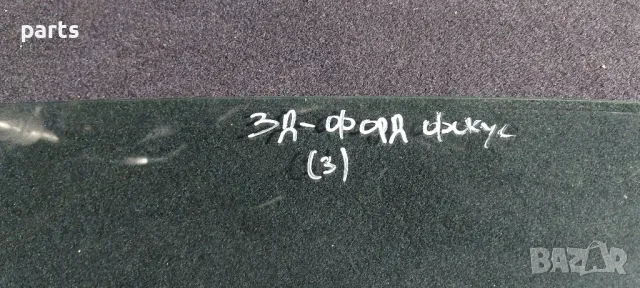 parts
ЗД-ФОРД фокус
(3)
BAZAR